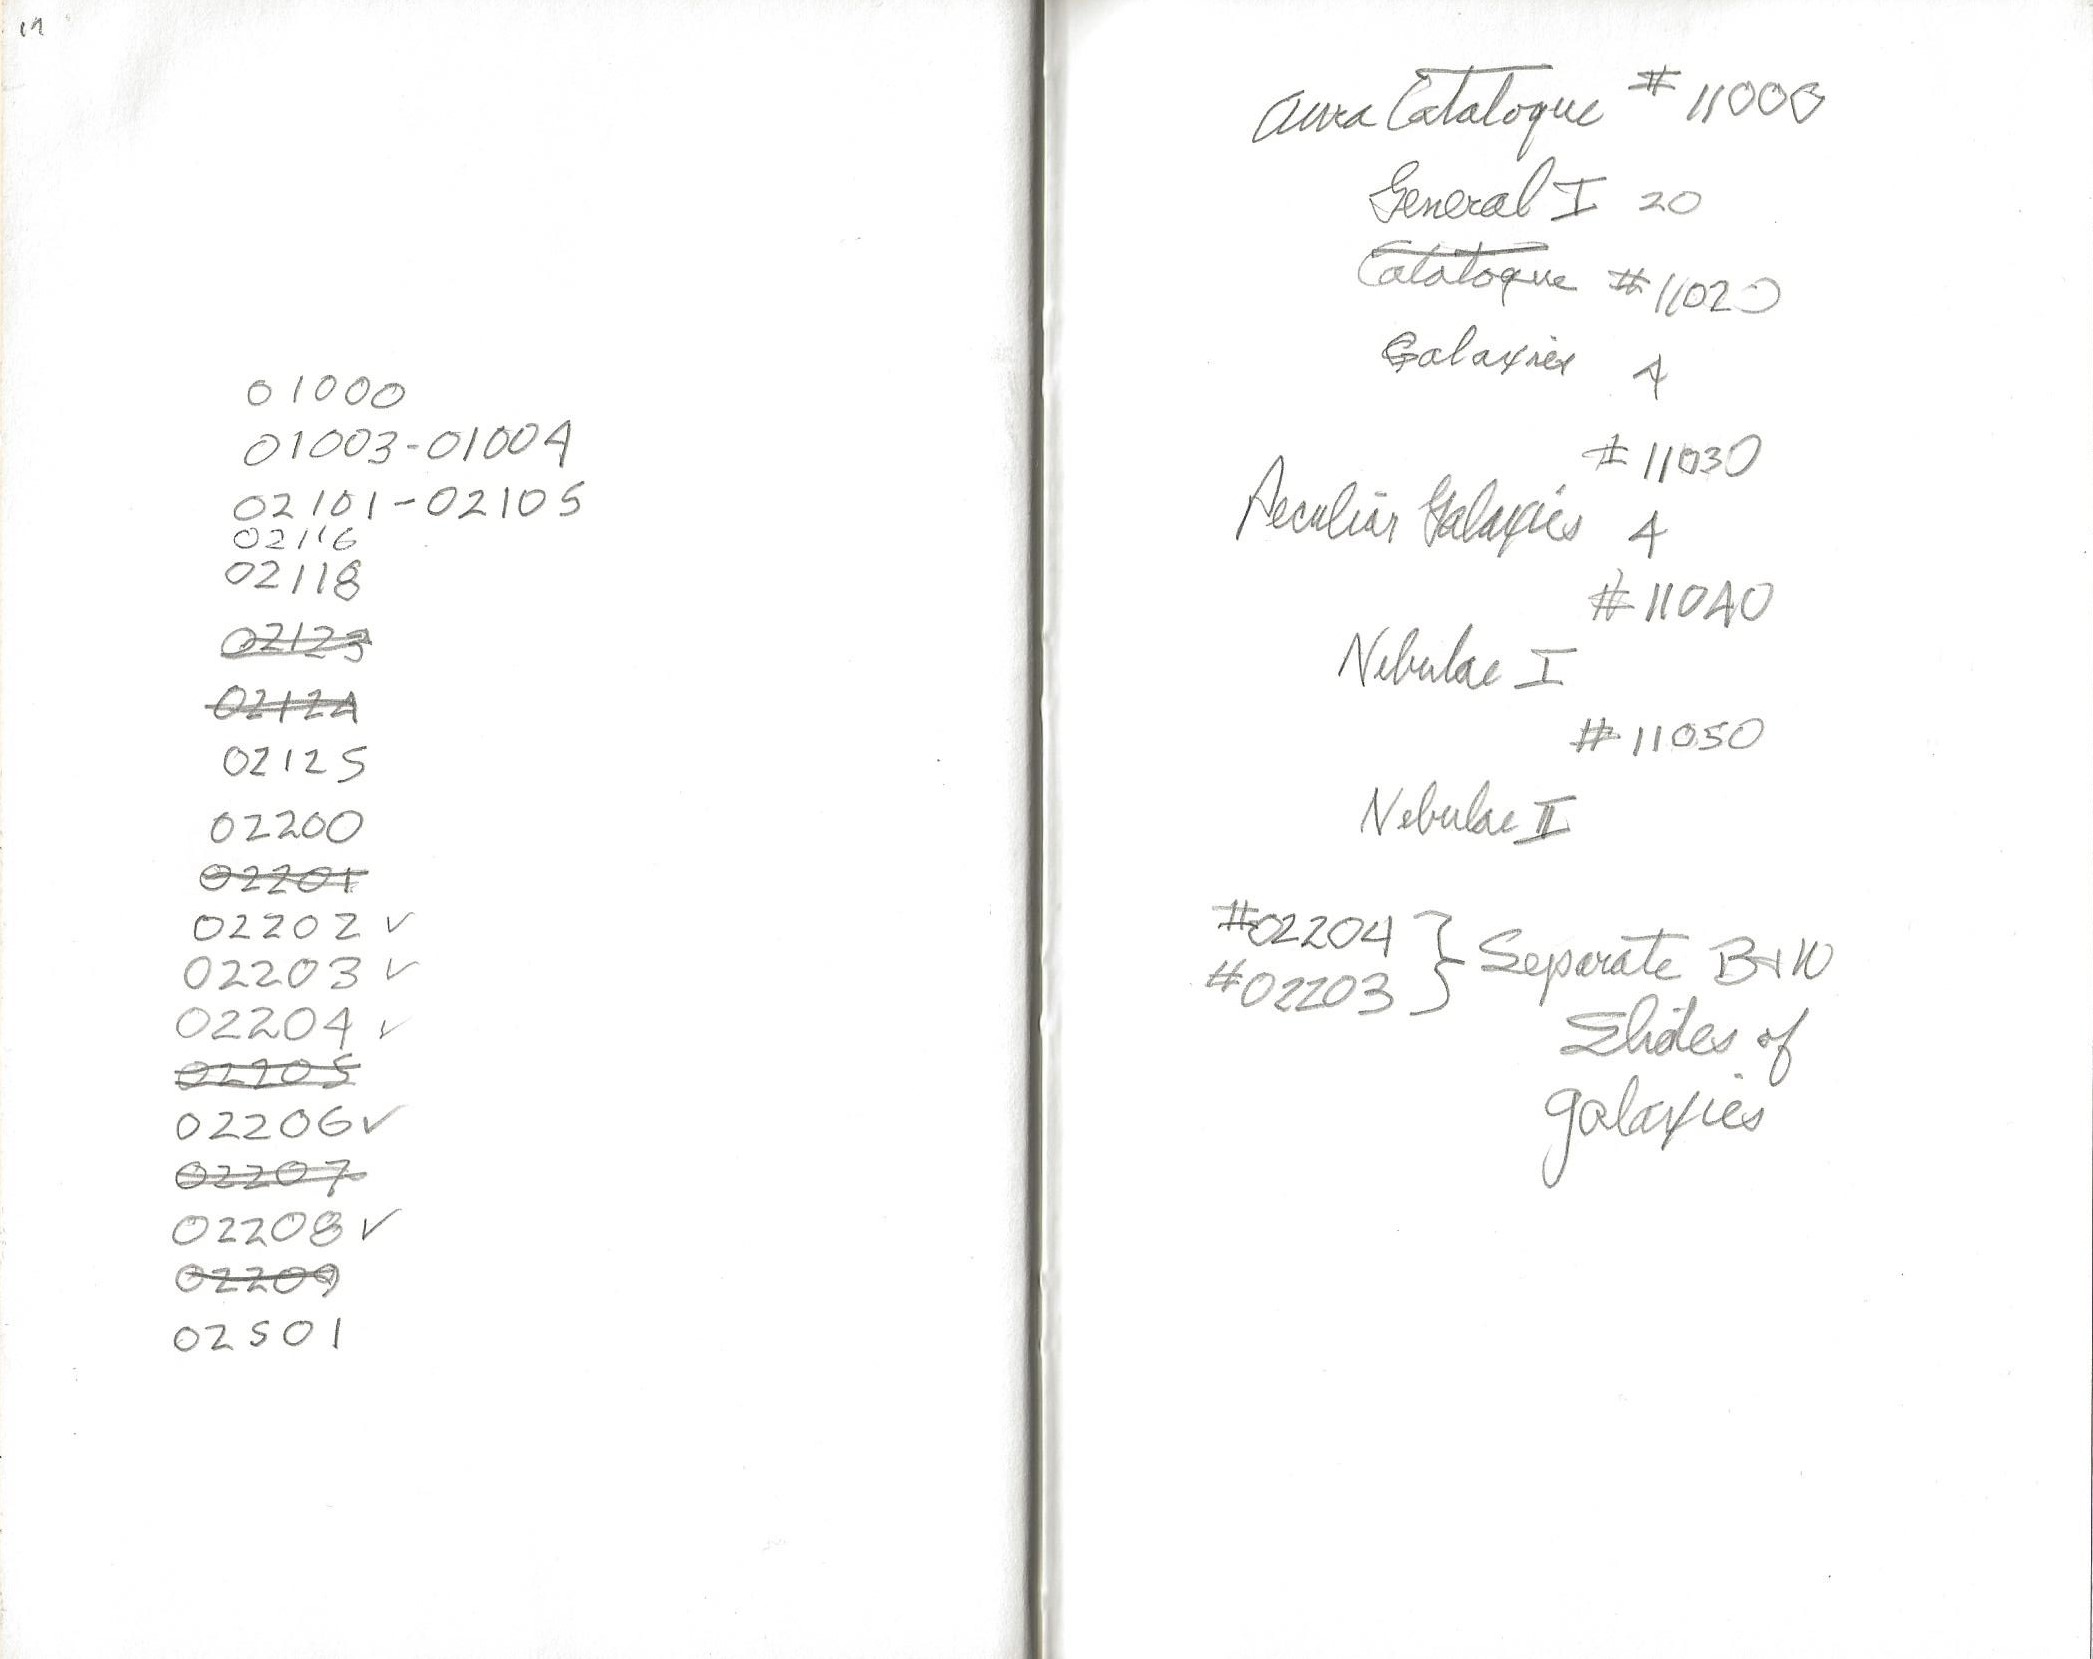 01000
01003-01004
02101-02105
02116
02118
02123
02124
02125
02200
02201
02202 ✓
02203 ✓
02204 ✓
02205
02206 ✓
02207
02208 ✓
02209
02501
Aura Catalogue # 11000
General I 20
Catalogue # 11020
Galaxies 4
# 11030
Peculiar Galaxies 4
# 11040
Nebulae I
# 11050
Nebulae II
#02204 } Separate B+W
#02203
Slides of
galaxies